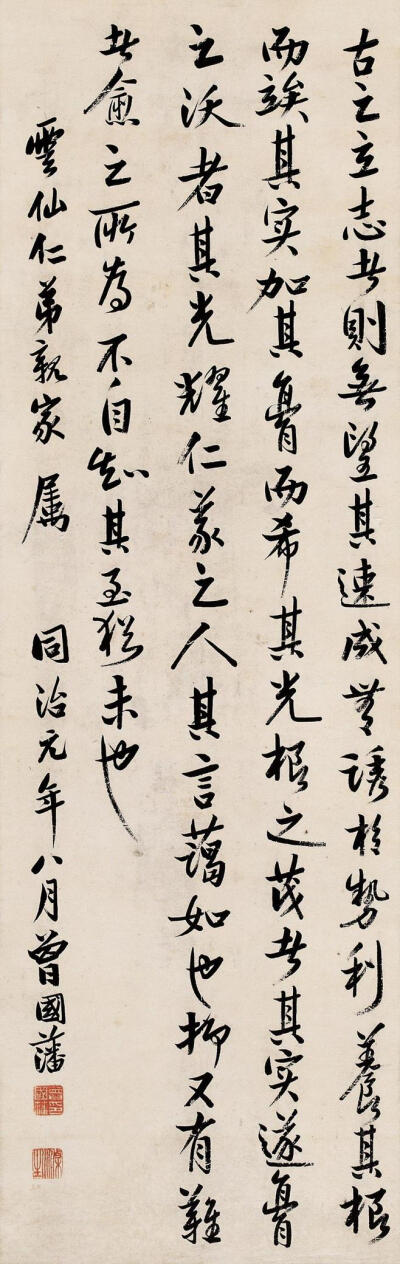 古之立志者則無望其速成無誘於勢利養其根
而竢其实加其膏而希其光根之茂者其实遂膏
之沃者其光耀仁義之人其言藹如也抑又有難
者愈之所為不自知其至猶未也
雲仙仁弟親家属 同治元年八月曾國藩